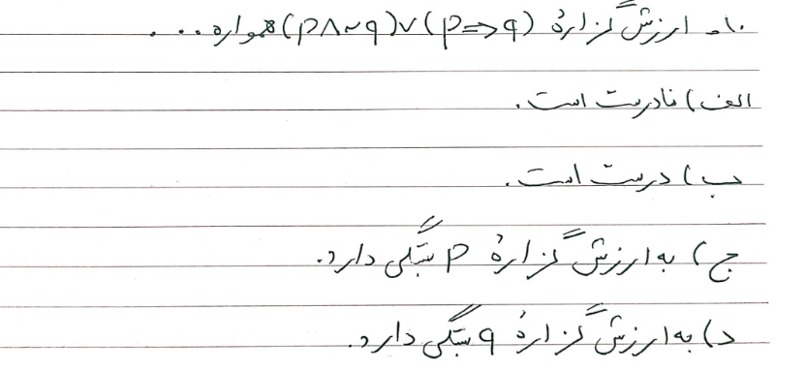 ۱۰- ارزش گزارهٔ (p ⇒ q) ∨ (p ∧ ~q) همواره ...
الف) نادرست است.
ب) درست است.
ج) به ارزش گزارهٔ p بستگی دارد.
د) به ارزش گزارهٔ q بستگی دارد.